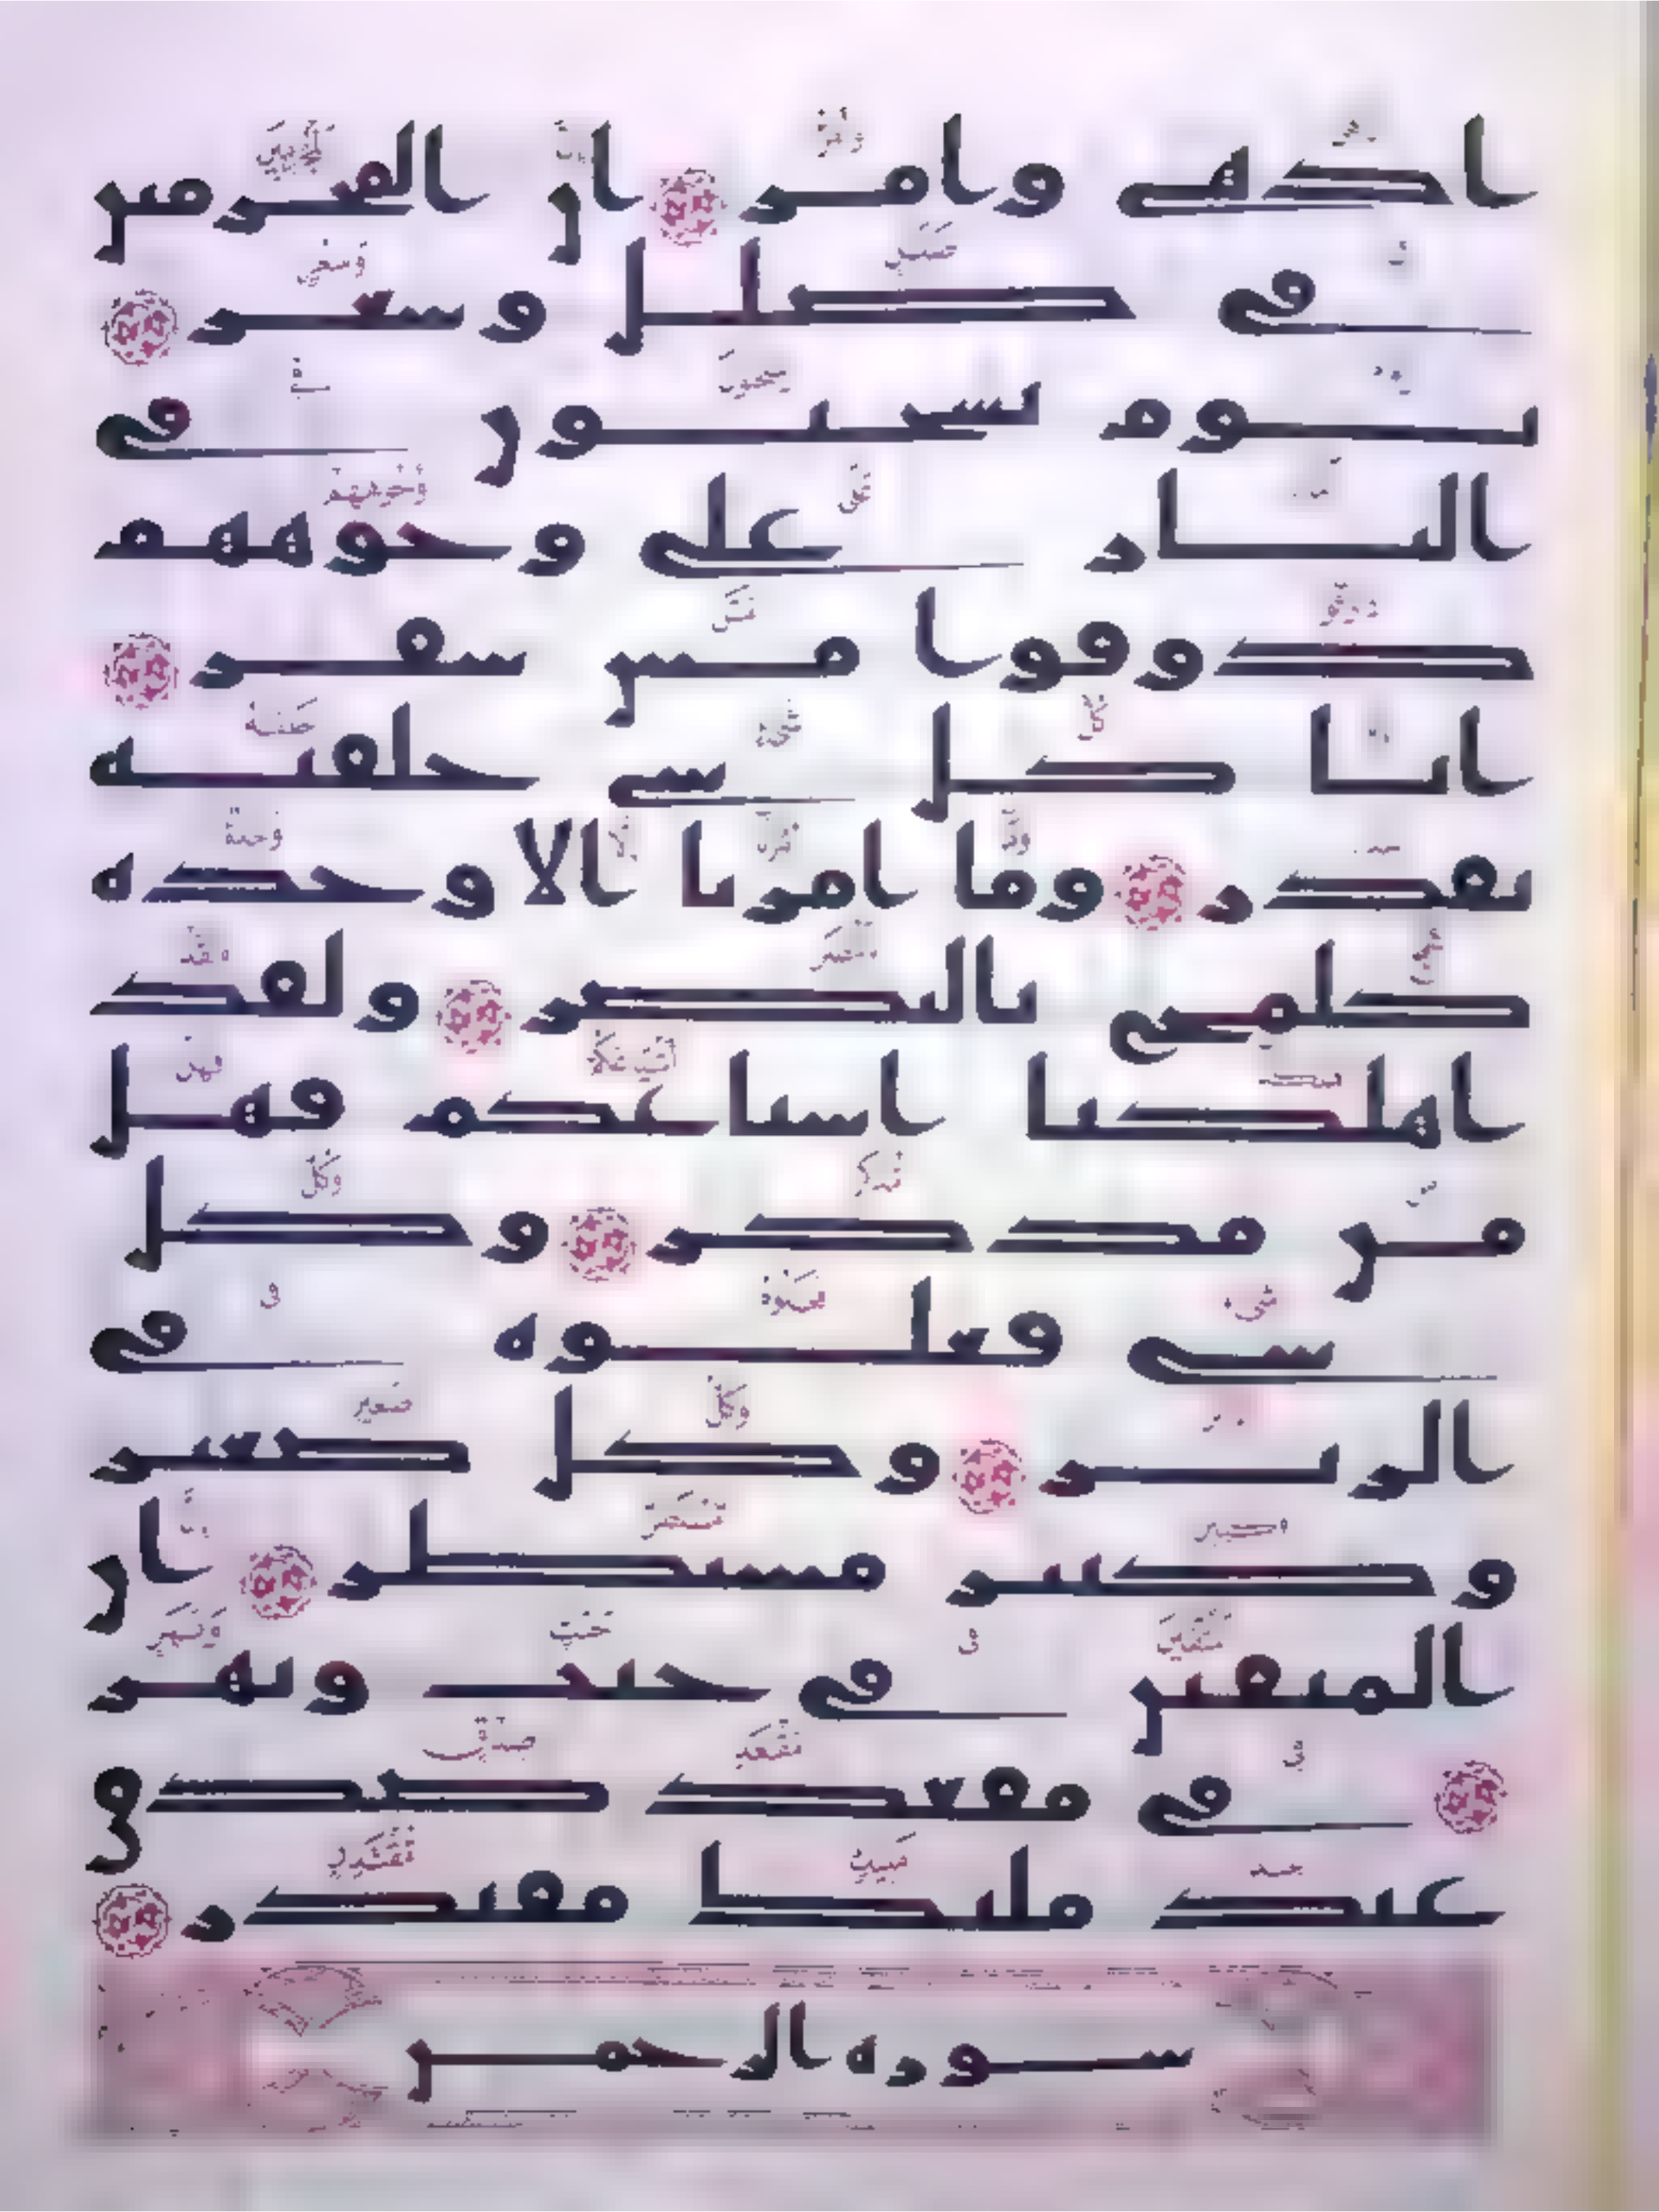 ادهى وامر ان المجرمين
في ضلل وسعر
يوم يسحبون في
النار على وجوههم
ذوقوا مس سقر
انا كل شي خلقنه
بقدر وما امرنا الا وحده
كلمح بالبصر ولقد
اهلكنا اشياعكم فهل
من مدكر وكل
شي فعلوه في
الزبر وكل صغير
وكبير مستطر ان
المتقين في جنت ونهر
في مقعد صدق
عند مليك مقتدر
سوره الرحمن